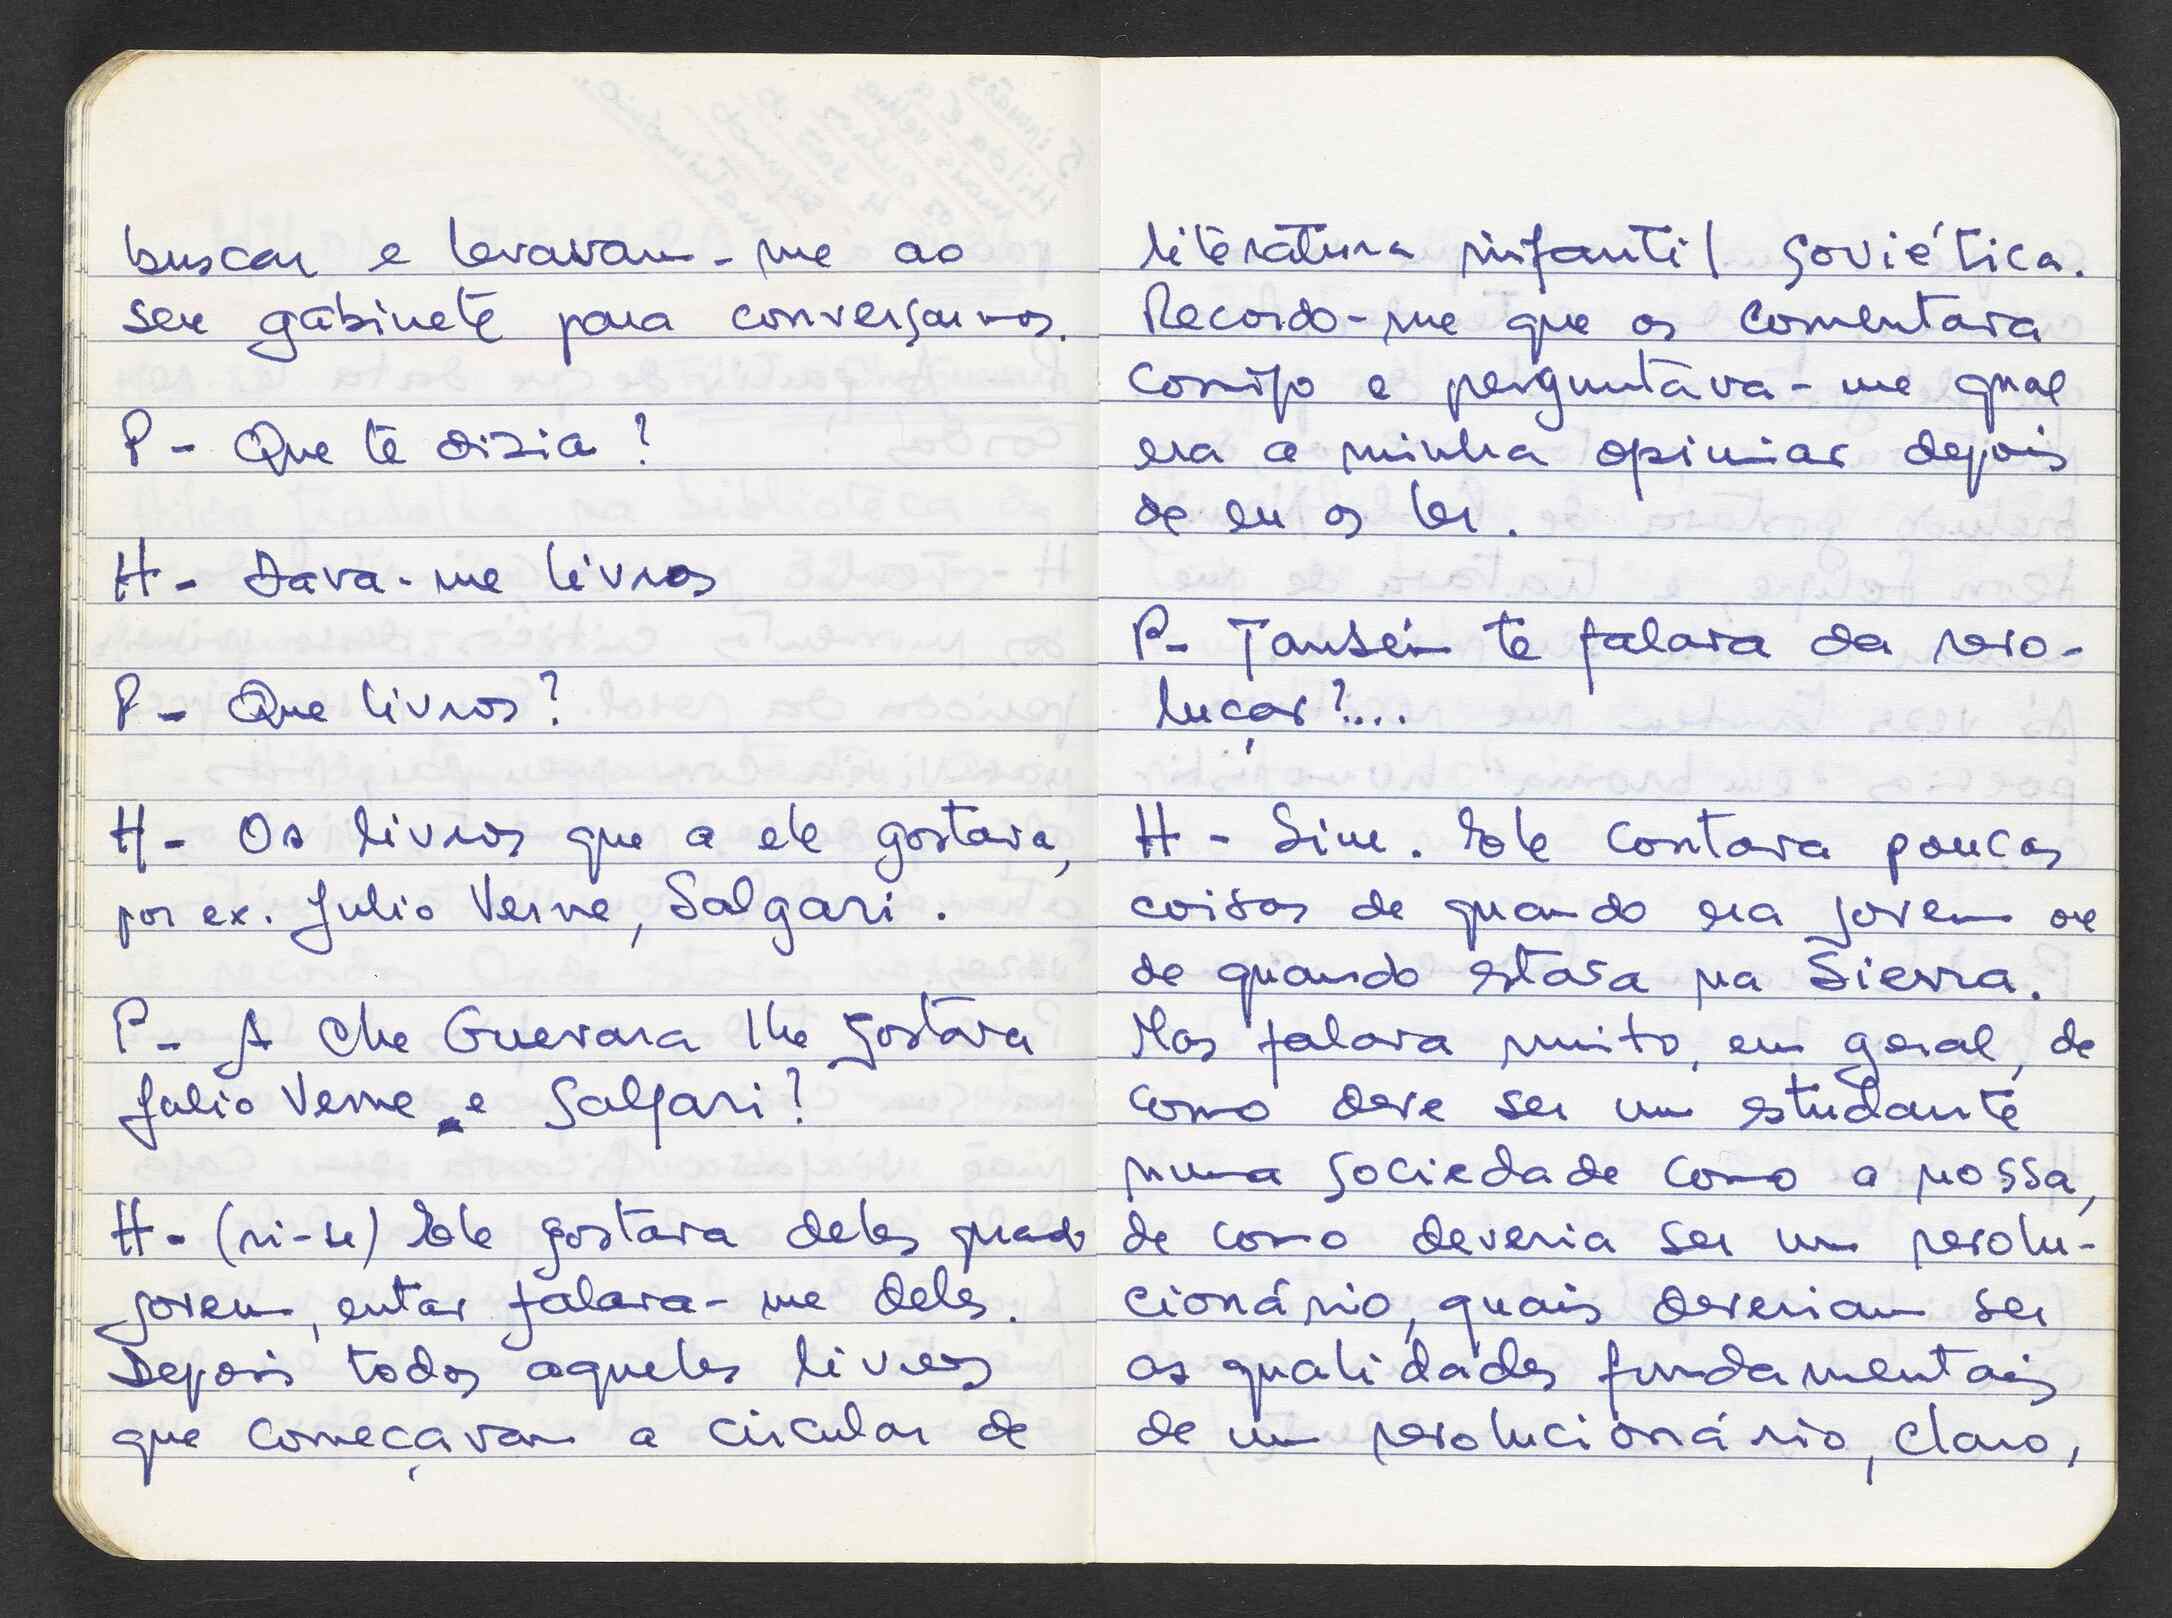 buscar e levavam-me ao
seu gabinete para conversarmos.
P- Que te dizia?
H- Dava-me livros
P- Que livros?
H- Os livros que a ele gostava,
por ex. Julio Verne, Salgari.
P- A Che Guevara lhe gostava
Julio Verne e Salgari?
H- (ri-se) Ele gostava deles quando
jovem, então falava-me deles.
Depois todos aqueles livros
que começavam a circular de
literatura infantil soviética.
Recordo-me que os comentava
comigo e perguntava-me qual
era a minha opinião depois
de eu os ler.
P- Também te falava da revo-
lução?....
H- Sim. Ele contava poucas
coisas de quando era jovem ou
de quando estava na Sierra.
Mas falava muito, em geral, de
como deve ser um estudante
numa sociedade como a nossa,
de como deveria ser um revolu-
cionário, quais deveriam ser
as qualidades fundamentais
de um revolucionário, claro,